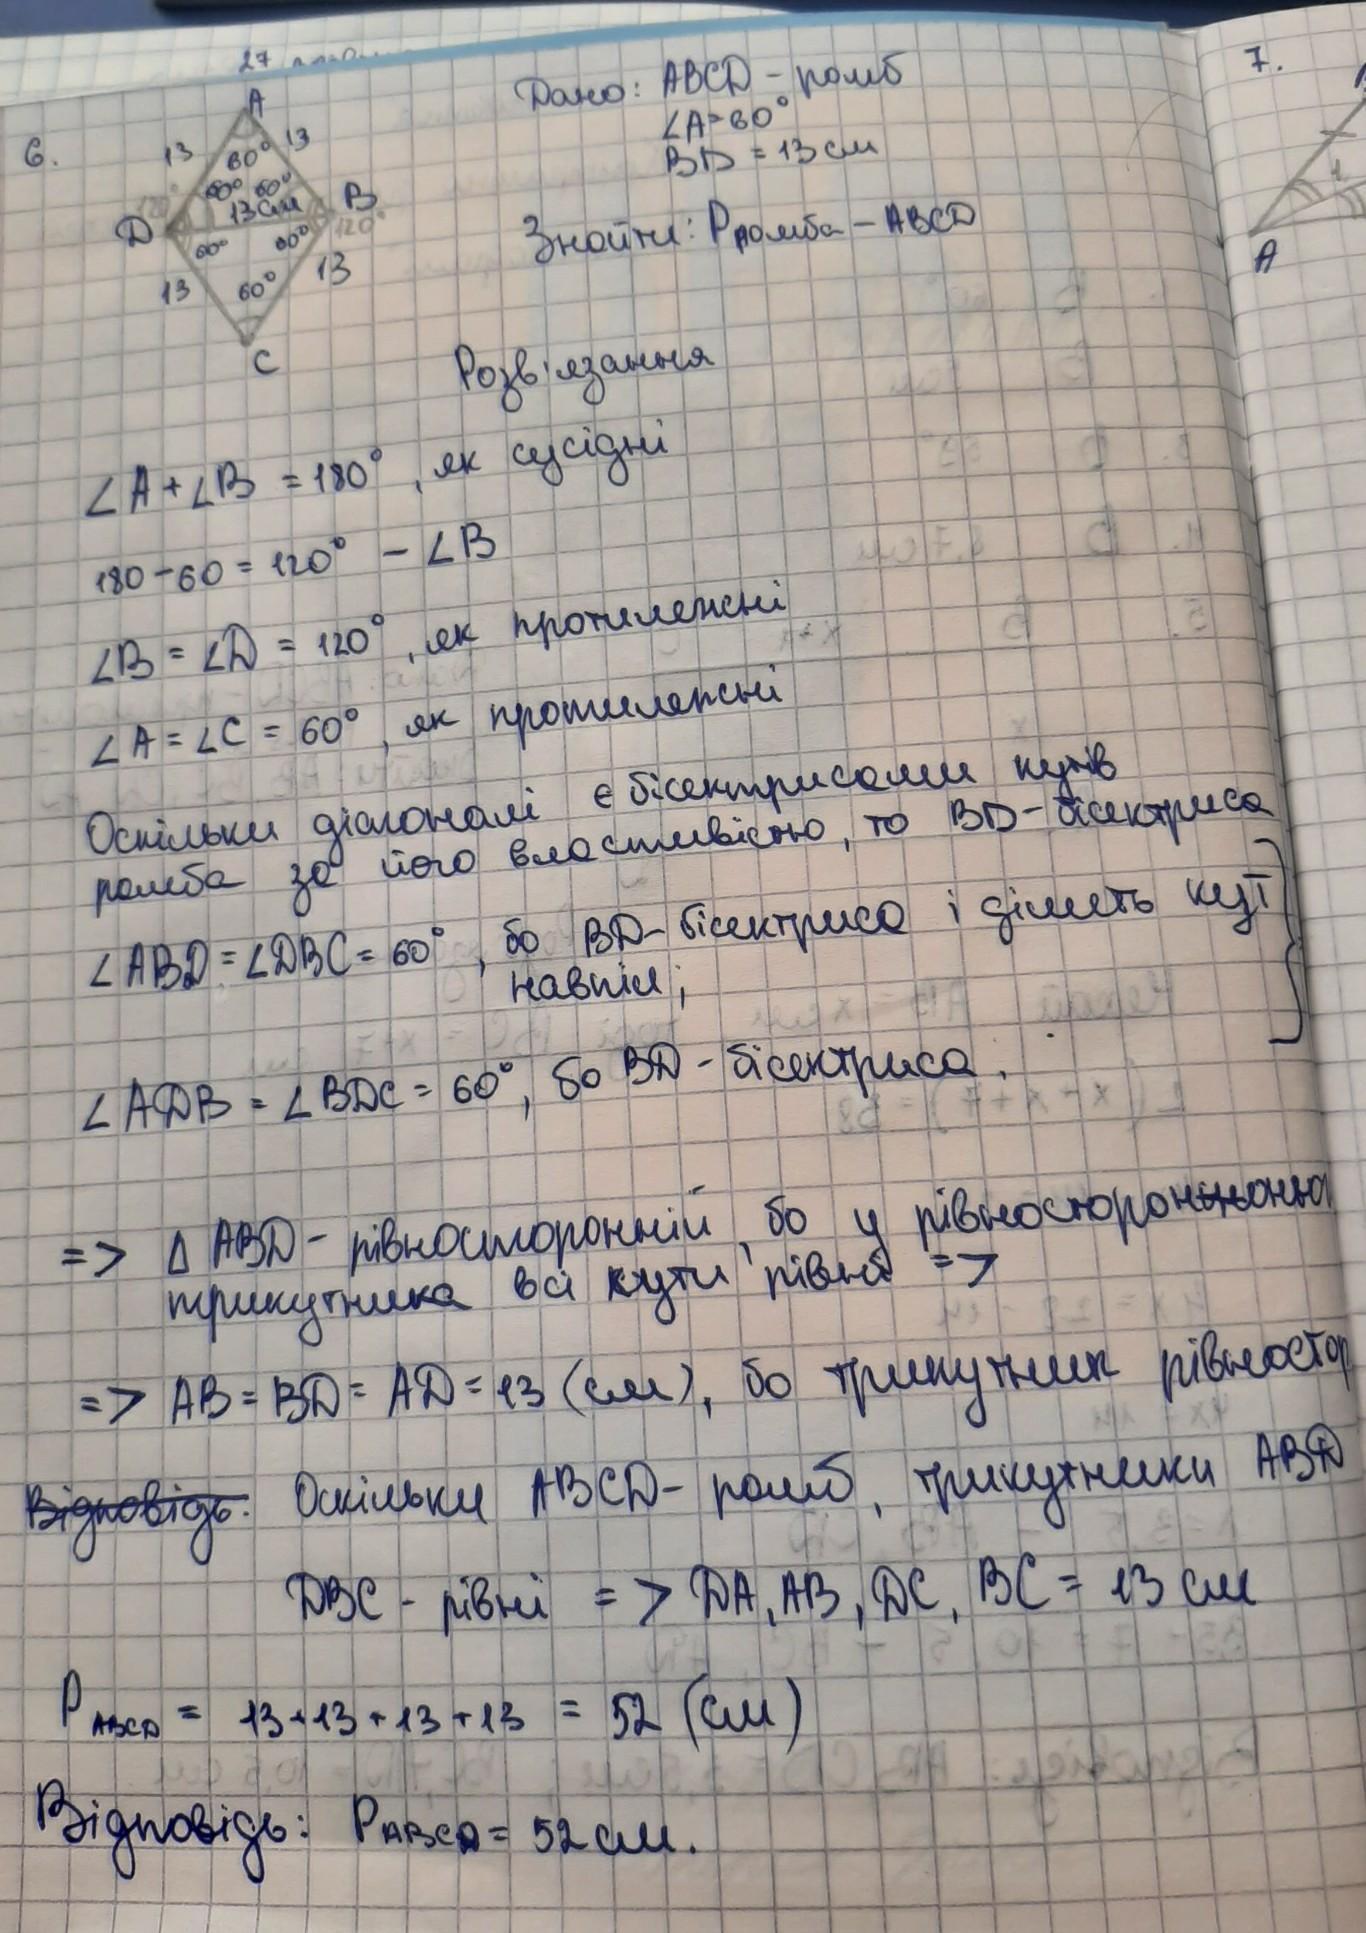 27
7.
Дано: ABCD - ромб
∠A = 60°
BD = 13 см
6.
A
13
13
60°
60°
60°
120°
13 см
D
B
120°
60°
60°
13
13
60°
C
A
Знайти: Pромба - ABCD
Розв'язання
∠A + ∠B = 180°, як сусідні
180 - 60 = 120° - ∠B
∠B = ∠D = 120°, як протилежні
∠A = ∠C = 60°, як протилежні
Оскільки діагоналі є бісектрисами кутів
ромба за його властивістю, то BD - бісектриса
∠ABD = ∠DBC = 60°, бо BD - бісектриса і ділить кут
навпіл;
∠ADB = ∠BDC = 60°, бо BD - бісектриса.
=> Δ ABD - рівносторонній, бо у
трикутника всі кути рівні =>
=> AB = BD = AD = 13 (см), бо трикутник рівностор
Відповідь: Оскільки ABCD - ромб, трикутники ABD
DBC - рівні => DA, AB, DC, BC = 13 см
P ABCD = 13 + 13 + 13 + 13 = 52 (см)
Відповідь: P ABCD = 52 см.